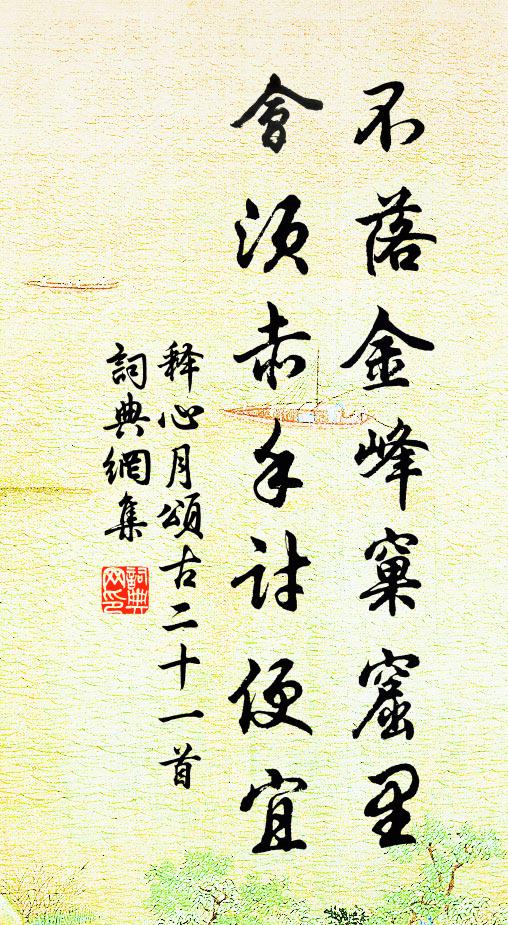 不落金峰窠窟里
會須赤手討便宜
释心月頌古二十一首
詞典網集
詞典
网印